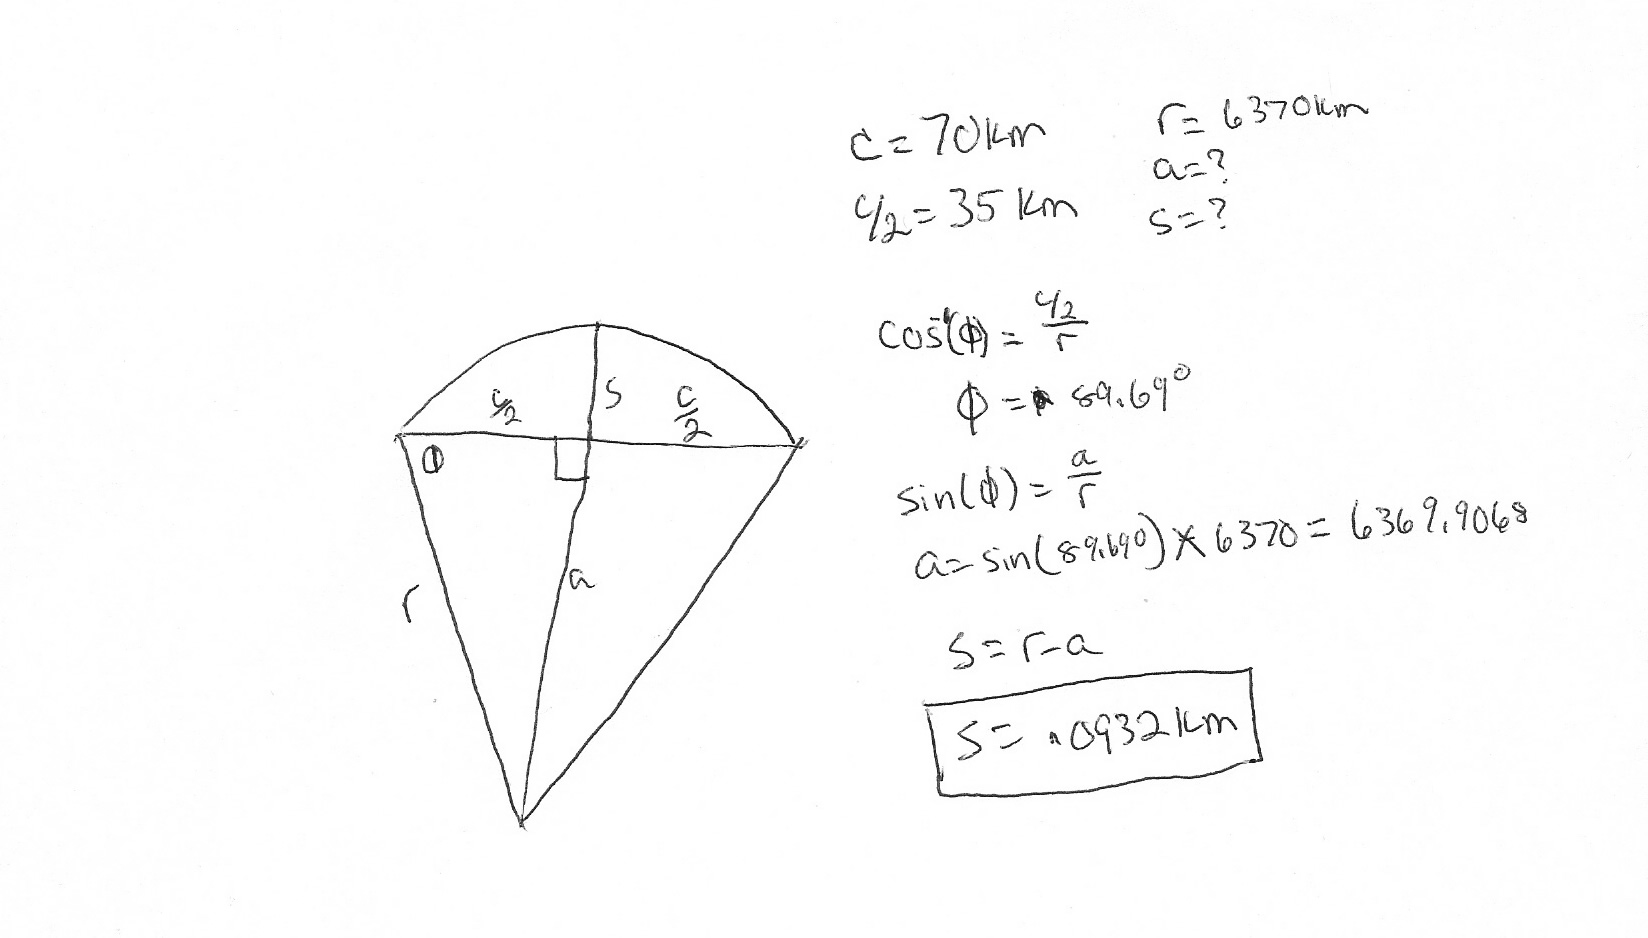 c = 70km
r = 6370km
a = ?
c/2 = 35 km
s = ?
cos⁻¹(ϕ) = c/2 / r
ϕ = 89.69°
sin(ϕ) = a/r
a = sin(89.690) × 6370 = 6369.9068
s = r - a
s = .0932 km
c/2
s
c/2
ϕ
a
r